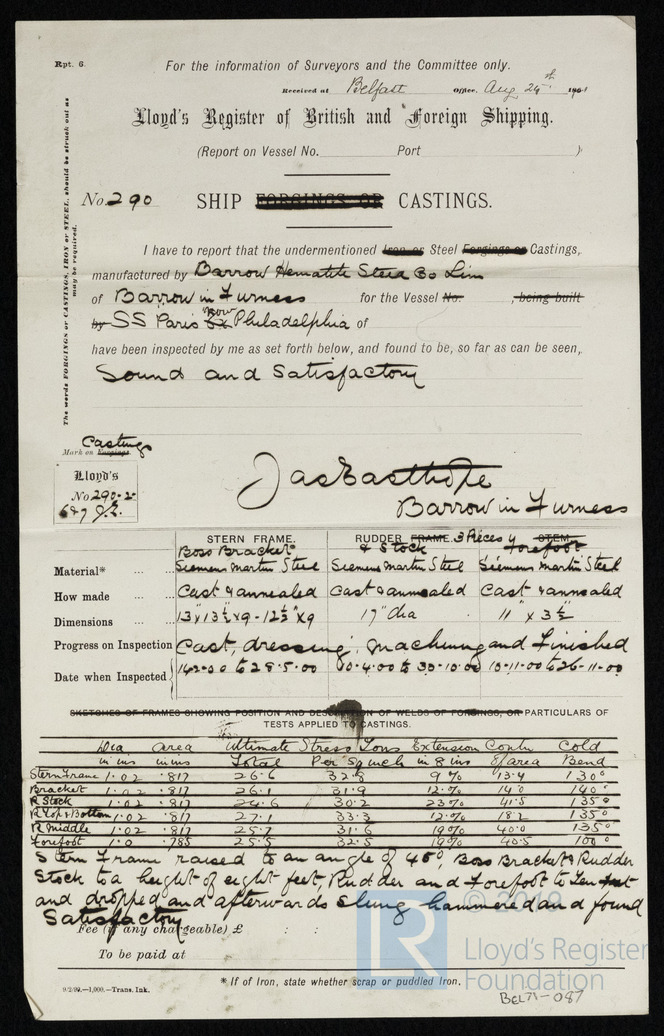 Rpt. 6.
For the information of Surveyors and the Committee only.
Received at Belfast Office, Aug 24st 1901
Lloyd's Register of British and Foreign Shipping.
(Report on Vessel No. Port )
No. 290 SHIP FORGINGS OR CASTINGS.
The words FORGINGS or CASTINGS, IRON or STEEL, should be struck out as may be required.
I have to report that the undermentioned Iron or Steel Forgings or Castings,
manufactured by Barrow Hematite Steel Co Lim
of Barrow in Furness for the Vessel No. , being built
by SS Paris now Philadelphia of
have been inspected by me as set forth below, and found to be, so far as can be seen,
Sound and Satisfactory
Castings
Mark on Forgings
Lloyd's
No 290-2
687 J.E.
Jas Easthope
Barrow in Furness
STERN FRAME. RUDDER FRAME. 3 Pieces STEM.
Boss Bracket & Stock Forefoot
Material* Siemens Martin Steel Siemens Martin Steel Siemens Martin Steel
How made Cast & annealed Cast & annealed Cast & annealed
Dimensions 13" x 13½" x 9 - 12½" x 9 17" dia 11" x 3½"
Progress on Inspection Cast, dressing, machining and Finished
Date when Inspected 14-2-00 to 28-5-00 10-4-00 to 30-10-00 10-11-00 to 26-11-00
SKETCHES OF FRAMES SHOWING POSITION AND DESCRIPTION OF WELDS OF FORGINGS, OR PARTICULARS OF
TESTS APPLIED TO CASTINGS.
Dia area Ultimate Stress Tons Extension Contn Cold
in ins in ins Total Per Sq inch in 8 ins of area Bend
Stern Frame 1.02 .817 26.6 32.8 9% 13.4 130°
Bracket 1.02 .817 26.1 31.9 12.% 14.0 140°
R Stock 1.02 .817 24.6 30.2 23% 41.5 135°
R Top & Bottom 1.02 .817 27.1 33.3 12.% 18.2 135°
R Middle 1.02 .817 25.7 31.6 19% 40.0 135°
Forefoot 1.0 .785 25.5 32.5 19% 40.5 100°
Stern Frame raised to an angle of 45°, Boss Bracket & Rudder
Stock to a height of eight feet, Rudder and Forefoot to Ten feet
and dropped and afterwards Slung hammered and found
Satisfactory
Fee (if any chargeable) £ : :
To be paid at
* If of Iron, state whether scrap or puddled Iron.
9/2/99.—1,000.—Trans. Ink.
© 2019
LR
Lloyd's Register
Foundation
BEL71-087